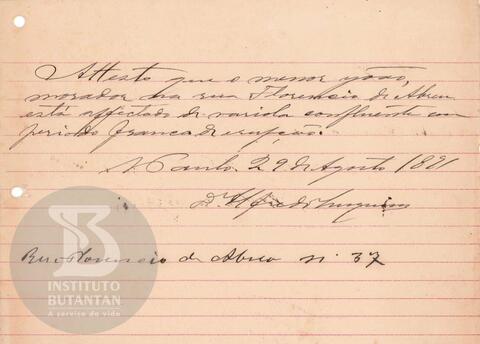 Attesto que o menor João,
morador na rua Florencio de Abreu
está affectado de variola confluente em
periodo franco de erupção.
S. Paulo, 29 de Agosto 1891
Dr. Alfredo
Rua Florencio de Abreu nº 37
INSTITUTO
BUTANTAN
A serviço da vida